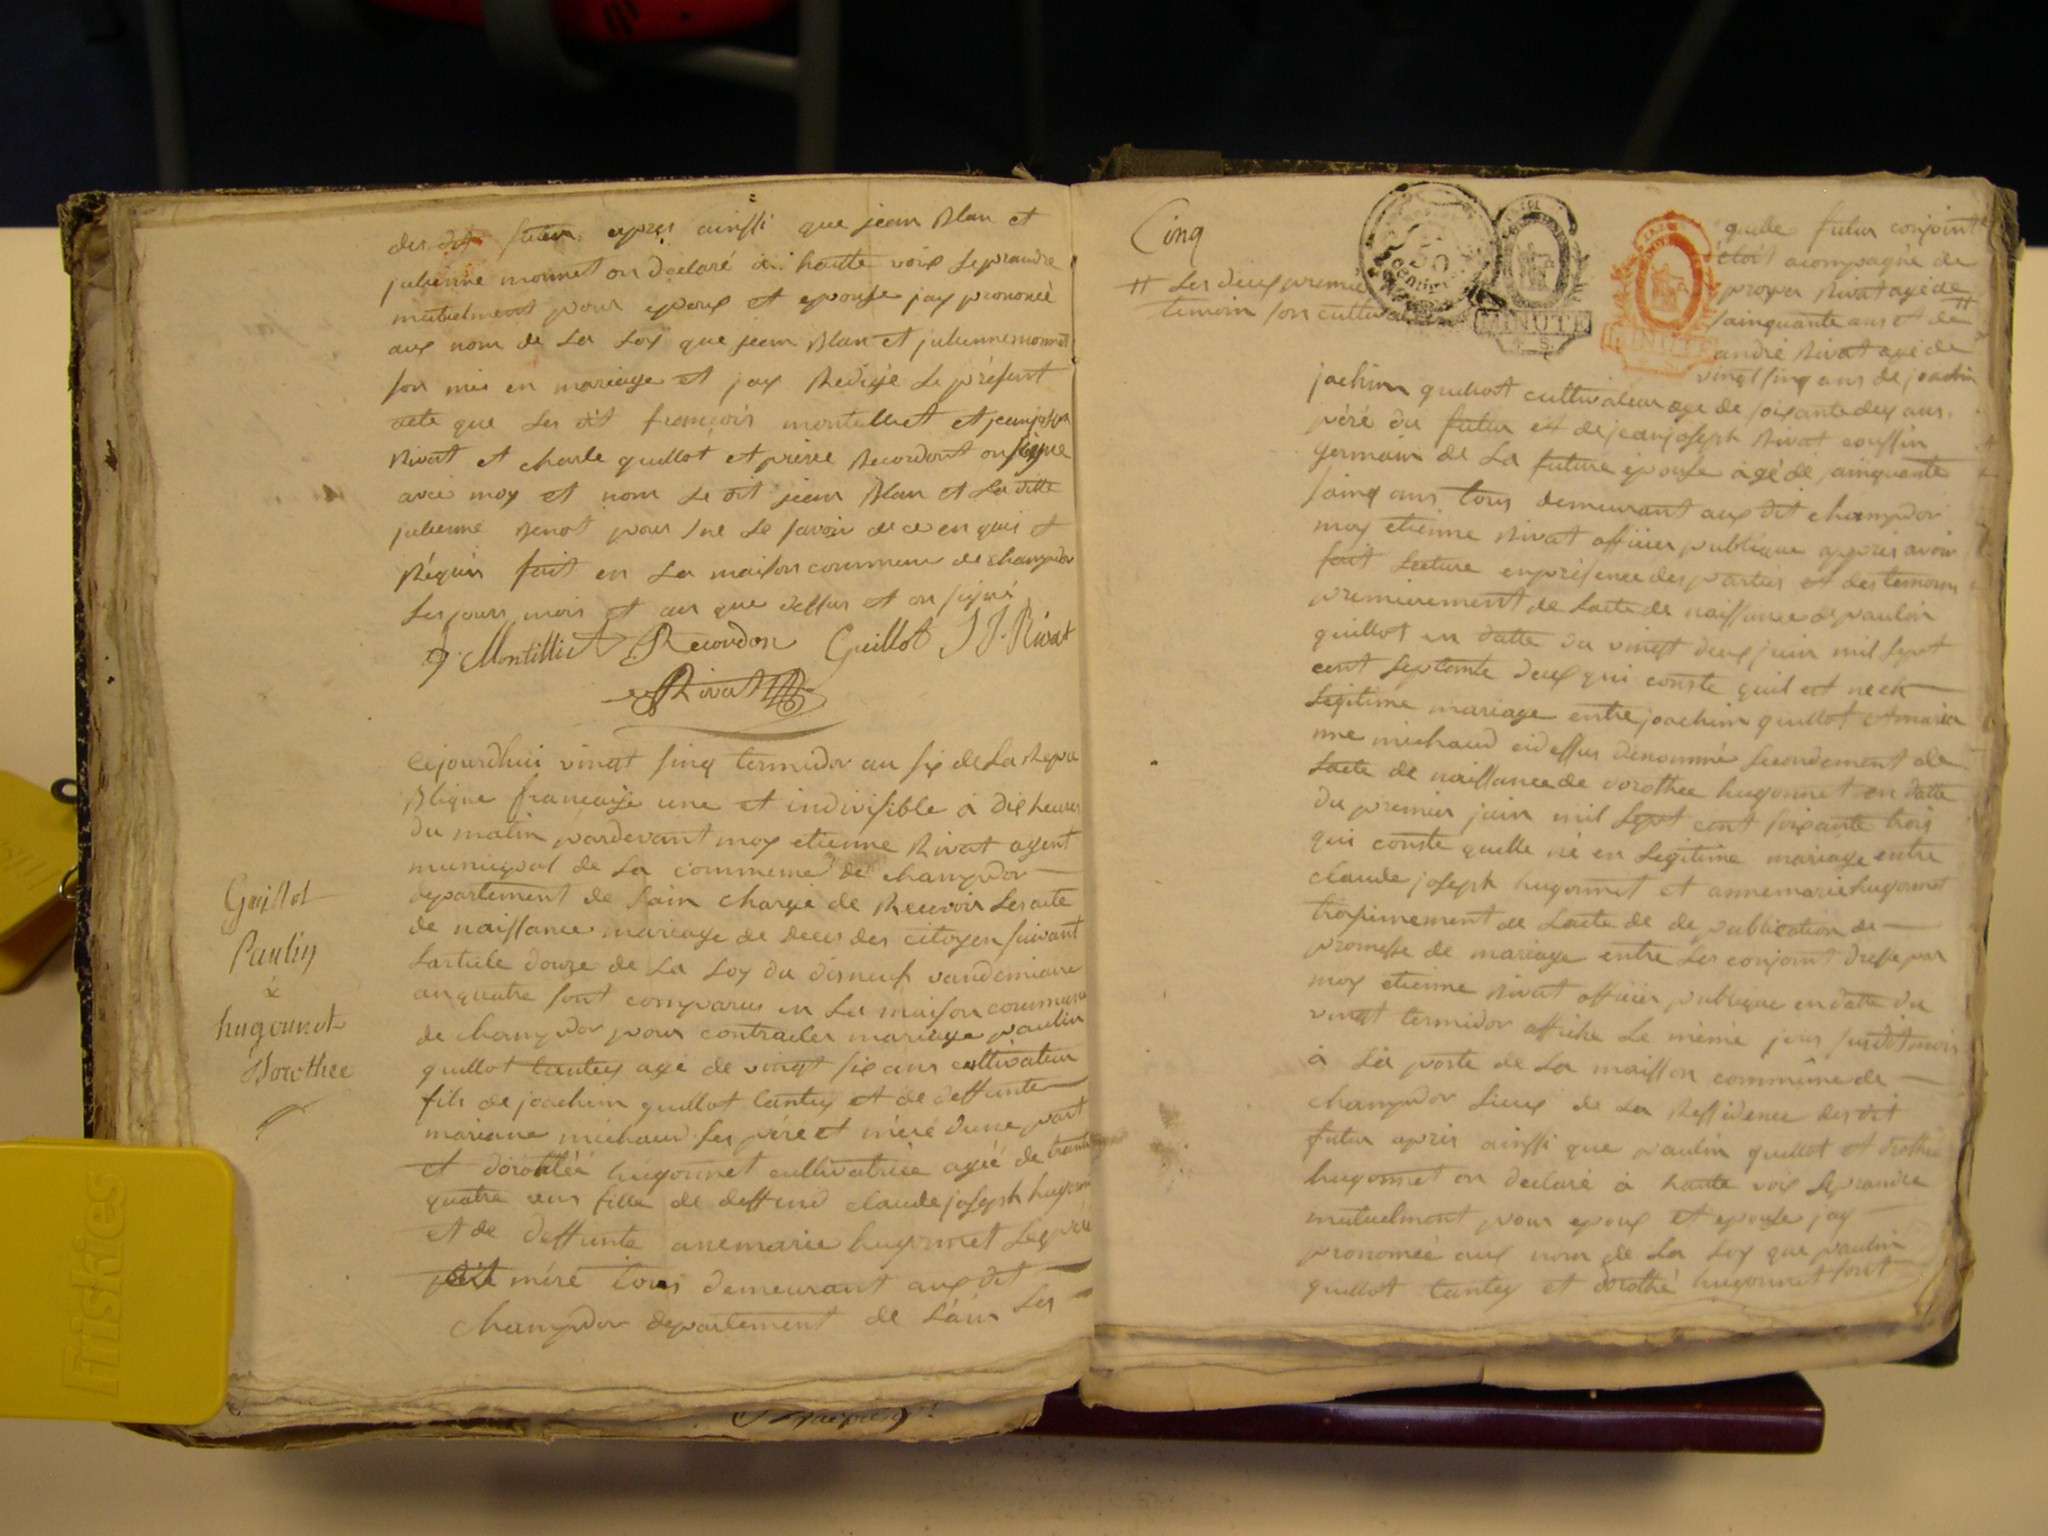 des dit futur apres ainssi que jean Blan et
julienne monnet on declaré a haute voix se prandre
mutuelment pour epoux et epouse jay prononcé
aux nom de La Loy que jean Blan et julienne monnet
son mis en mariage et jay Redigé Le présent
acte que Les dit françois montillet et jean joseph
Rivat et charle guillot et pierre Recordont on signé
avec moy et nom Le dit jean Blan et La ditte
julienne pour ne Le savoir de ce en quis et
Réquis fait en La maison commune de champdor
Les jours mois et an que dessus et on signé
Montillict Recordon Guillot J J. Rivat
Rivat
Cejourdhui vingt sing termidor an six de La Repu
Blique francaise une et indivisible à dix heures
du matin pardevant moy etienne Rivat agent
municipal de La commune de champdor
departement de Lain chargé de Recevoir Les acte
de naissance mariage de deces des citoyen suivant
Larticle douze de La Loy du disneuf vandemiaire
an quatre sont comparus en La maison commune
de champdor pour contracter mariage paulin
guillot tantey agé de vingt six ans cultivateur
fils de joachim guillot tantey et de deffunte
mariane michaud ses père et mère dune part
et dorothée hugonnet cultivatrice agée de trante
quatre ans fille de deffund claude joseph hugonnet
et de deffunte anemarie hugonnet Ses père
mére tous demeurant aux dit
champdor departement de Lain Les
Guillot
Paulin
x
hugonnet
Dorothee
Cinq
# Les deux premier
temoin son cultiva
50
MINUTE
MINUTE
quelle futur conjoint
étoit acompagné de
proper Rivat agé de
sainquante ans et de #
andré Rivat agé de
vingt sinq ans de joachin
joachim guillot cultivateur age de soixante dex ans
péré du futur et de jean joseph Rivat coussin
germain de La future épouse àgé de sainquante
sainq ans tous demeurant aux dit champdor
moy etienne Rivat officier publique appres avoir
fait Lecture en présence des parties et des temoins
premierement de Lacte de naissance de paulin
guillot en datte du vingt deux juin mil sept
cent septante deux qui conste quil est né de
Légitime mariage entre joachim guillot et maria
nne michaud cidessus dénommé secondement de
Lacte de naissance de dorothee hugonnet en datte
du premier juin mil sept cent soixante trois
qui conste quelle né en Legitime mariage entre
claude joseph hugonnet et annemarie hugonnet
trosiemement de Lacte de de publication de
promesse de mariage entre Les conjoint dresse par
moy etienne Rivat officier publique en datte du
vingt termidor affiche Le méme jour susdit mois
à La porte de La maisson commune de
champdor Lieux de La Ressidence des dit
futur apris ainssi que paulin guillot et drothé
hugonnet on declaré à haute voix se prandre
mutuelmont pour epoux et epouse jay
prononcé aux nom de La Loy que paulin
guillot tantey et dorothé hugonnet sont